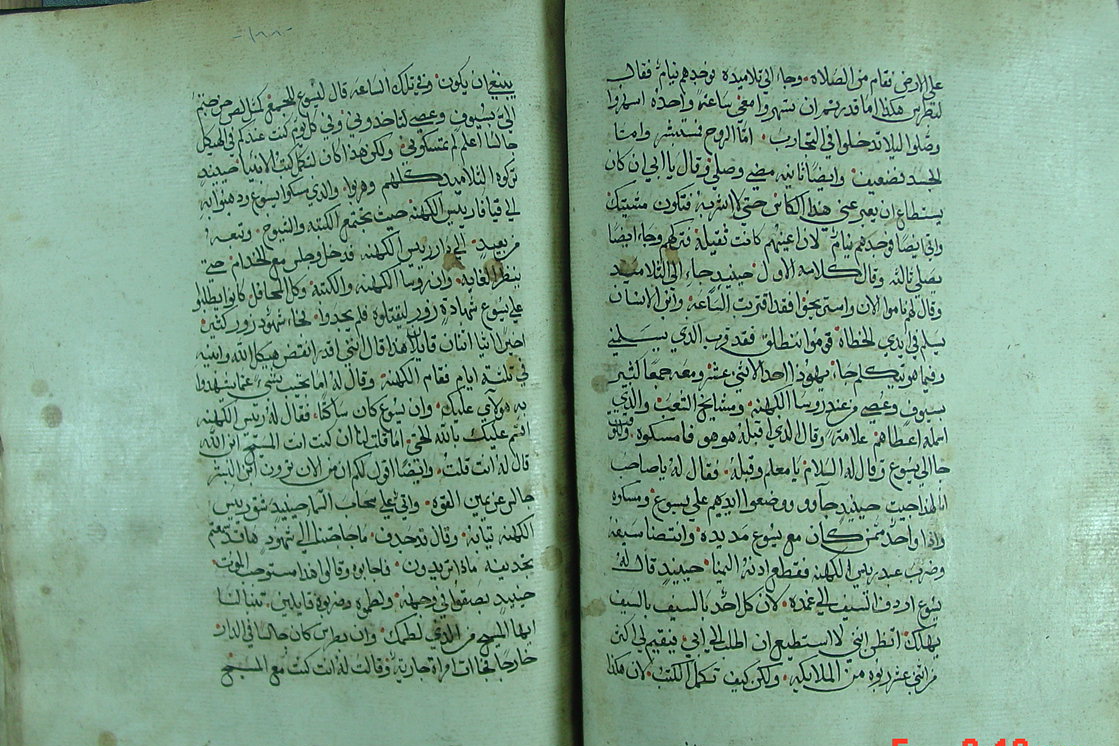 علي الارض فقام من الصلاة وجا الي تلاميذه فوجدهم نيام فقال
لبطرس هكذا اما قدرتم ان تسهروا معي ساعة واحدة اسهروا
وصلوا ليلا تدخلوا في التجارب اما الروح تستبشر واما
الجسد فضعيف وايضا ثانيه مضي وصلي وقال يا ابي ان كان
يستطاع ان يعبر عني هذا الكاس حتي لا اشربه فتكون مشيتك
واتي ايضا وجدهم نيام لان اعينهم كانت ثقيلة تركهم وجا ايضا
يصلي ثالثه وقال كلامه الاول حينيذ جا الي التلاميذ
وقال لهم ناموا الان واستريحوا فقد اقتربت الساعة وابن الانسان
يسلم في ايدي الخطاة قوموا ننطلق فقد قرب الذي يسلمني
وفيما هو يتكلم جا يهودا احد الاثني عشر ومعه جمعا كثير
بسيوف وعصي من عند روسا الكهنة ومشايخ الشعب والذي
اسلمه اعطاهم علامة وقال الذي اقبله هو هو فامسكوه
جا الي يسوع وقال له السلام يا معلم وقبله فقال له يا صاحب
لهذا جيت حينيذ جاوو ووضعوا ايديهم علي يسوع ومسكوه
واذا واحد ممن كان مع يسوع مد يده وانتضا سيفه
وضرب عبد ريس الكهنه فقطع اذنه اليمنا حينيذ قال له
يسوع اردد السيف الي غمده لان كل احد بالسيف بالسيف
يهلك اتظن انني لا استطيع ان اطلب الي ابي فيقيم لي اكثر
من اثني عشر ربوه من الملايكه ولكن كيف تكمل الكتب لان هكذا
ينبغي ان يكون وفي تلك الساعه قال يسوع للجمع كمثل لص خرجتم
الي بسيوف وعصي لتاخدوني وفي كل يوم كنت عندكم في الهيكل
جالسا اعلم لم تمسكوني ولكن هذا كان لتكمل كتب الانبيا حينيذ
تركوه التلاميذ كلهم وهربوا والذي مسكوا يسوع ودهبوا به
الي قيافا ريس الكهنه حيث تجتمع الكتبه والشيوخ وتبعه
من بعيد الي دار ريس الكهنه فدخل وجلس مع الخدام حتي
ينظر الغاية وان روسا الكهنه والكتبه وكل المحافل كانوا يطلبوا
علي يسوع شهادة زور ليقتلوه فلم يجدوا فجاء شهود زور كثير
اخيرا اتيا اثنان قايلين هذا قال انني اقدر انقض هيكل الله وابنيه
في ثلثة ايام فقام الكهنه وقال له اما تجيب بشي عما يشهدوا
به هولاي عليك وان يسوع كان ساكتا فقال له ريس الكهنه
اقسم عليك بالله الحي اما قلت لنا ان كنت انت المسيح ابن الله
قال له انت قلت وايضا اقول لكم ان من الان ترون ابن البشر
جالس عن يمين القوه واتي علي سحاب السما حينيذ شق ريس
الكهنه ثيابه وقال قد جدف ما حاجتنا الي شهود ها قد سمعتم
تجديفه مادا تريدون فاجابوه وقالوا هذا مستوجب الموت
حينيذ بصقوا في وجهه ولطموه وضربوه قايلين تنبا لنا
ايها المسيح من الذي لطمك وان بطرس كان جالسا في الدار
خارجا فجات امراة جارية وقالت له انت كنت مع المسيح